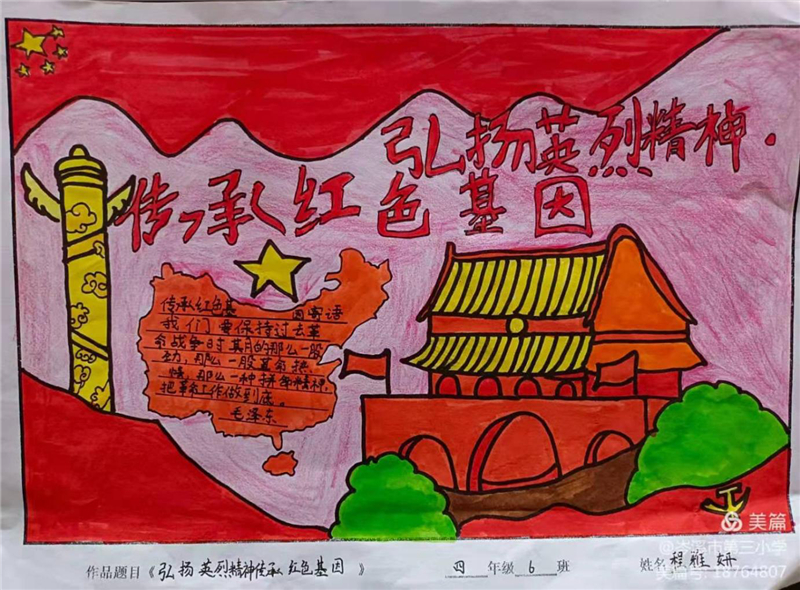 弘扬英烈精神.
传承红色基因
传承红色基因寄语
我们要保持过去革
命战争时期的那么一股
劲,那么一股革命热
情,那么一种拼命精神,
把革命工作做到底。
毛泽东
作品题目《弘扬英烈精神传承红色基因》 四年级6班 姓名程雅妍
美篇
市第三小学
美篇号:18764807